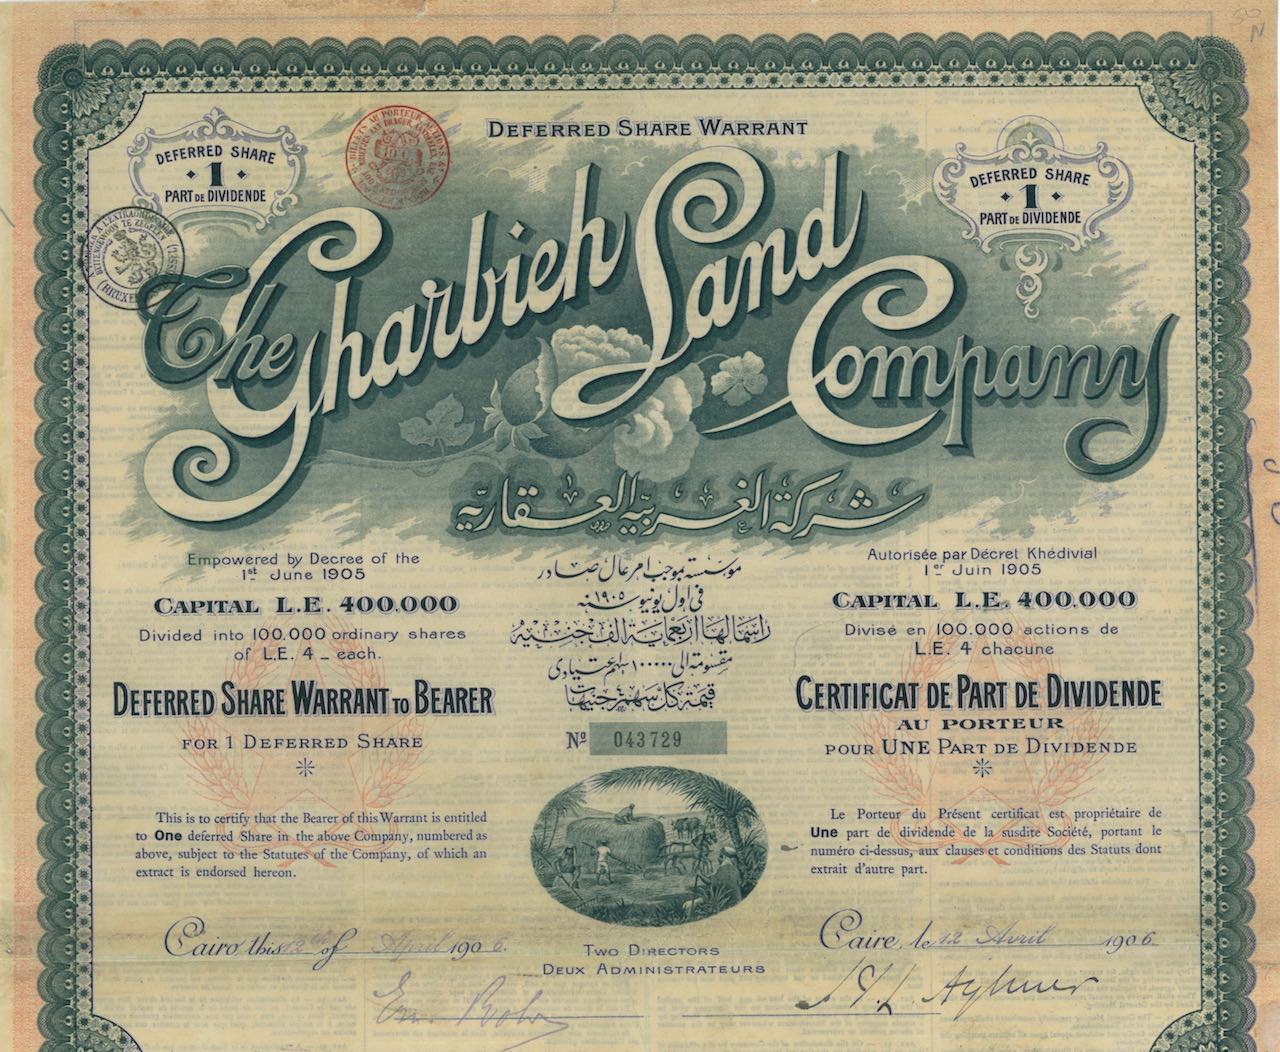 DEFERRED SHARE WARRANT
DEFERRED SHARE
1
PART DE DIVIDENDE
DEFERRED SHARE
1
PART DE DIVIDENDE
The Gharbieh Land Company
شركة الغربية العقارية
Empowered by Decree of the
1st June 1905
CAPITAL L.E. 400.000
Divided into 100.000 ordinary shares
of L.E. 4 _ each.
DEFERRED SHARE WARRANT TO BEARER
FOR 1 DEFERRED SHARE
This is to certify that the Bearer of this Warrant is entitled
to One deferred Share in the above Company, numbered as
above, subject to the Statutes of the Company, of which an
extract is endorsed hereon.
مؤسسة بموجب امر عال صادر
فى اول يونيو سنة ١٩٠٥
راسمالها اربعماية الف جنيه
مقسومة الى ١٠٠٠٠٠ سهم عتيادى
قيمة كل سهم ٤ جنيهات
Nº 043729
Autorisée par Décret Khédivial
1er Juin 1905
CAPITAL L.E. 400.000
Divisé en 100.000 actions de
L.E. 4 chacune
CERTIFICAT DE PART DE DIVIDENDE
AU PORTEUR
POUR UNE PART DE DIVIDENDE
Le Porteur du Présent certificat est propriétaire de
Une part de dividende de la susdite Société, portant le
numéro ci-dessus, aux clauses et conditions des Statuts dont
extrait d'autre part.
Cairo this 12th of April 1906.
Caire, le 12 Avril 1906
TWO DIRECTORS
DEUX ADMINISTRATEURS